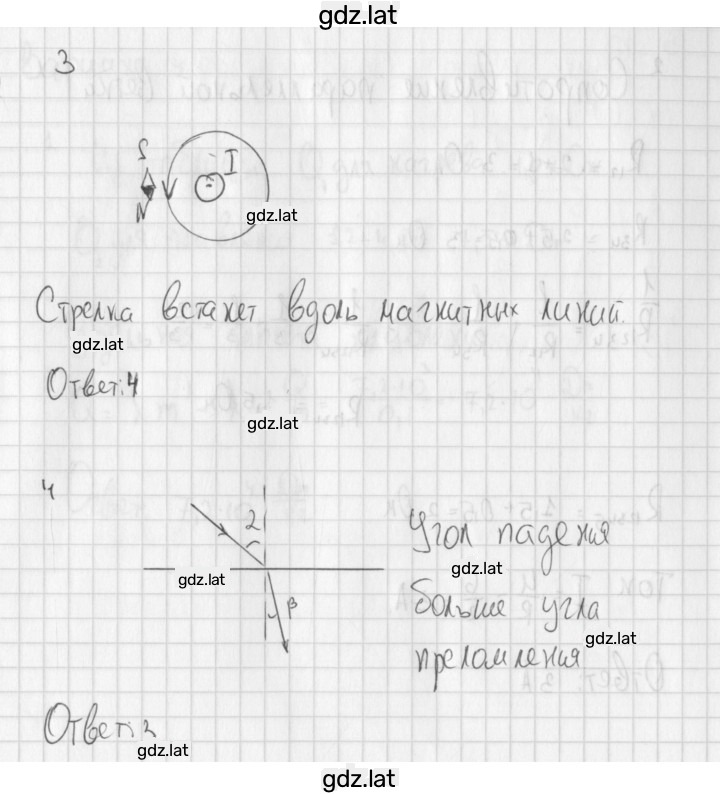 gdz.lat
3
S
I
N
gdz.lat
Стрелка встанет вдоль магнитных линий.
gdz.lat
Ответ: 4
gdz.lat
4
2
β
gdz.lat
Угол падения
gdz.lat
больше угла
gdz.lat
преломления
Ответ: 2
gdz.lat
gdz.lat